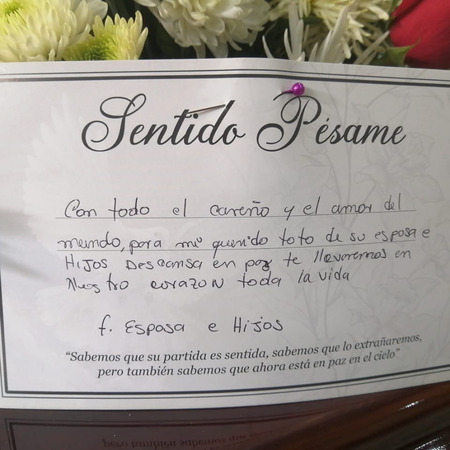 Sentido Pésame
Con todo el careño y el amor del
mundo, para mi querido toto de su esposa e
Hijos Descansa en paz te llevaremos en
Nuestro corazon toda la vida
f. Esposa e Hijos
“Sabemos que su partida es sentida, sabemos que lo extrañaremos,
pero también sabemos que ahora está en paz en el cielo”